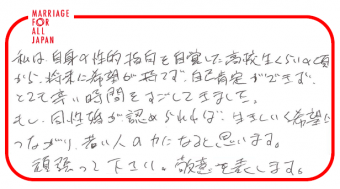 MARRIAGE
FOR
ALL
JAPAN
私は自身の性的指向を自覚した高校生くらいの頃
から、将来に希望が持てず、自己肯定ができず、
とても辛い時間をすごしてきました。
もし、同性婚が認められれば、生きていく希望に
つながり、若い人の力になると思います。
頑張って下さい。敬意を表します。